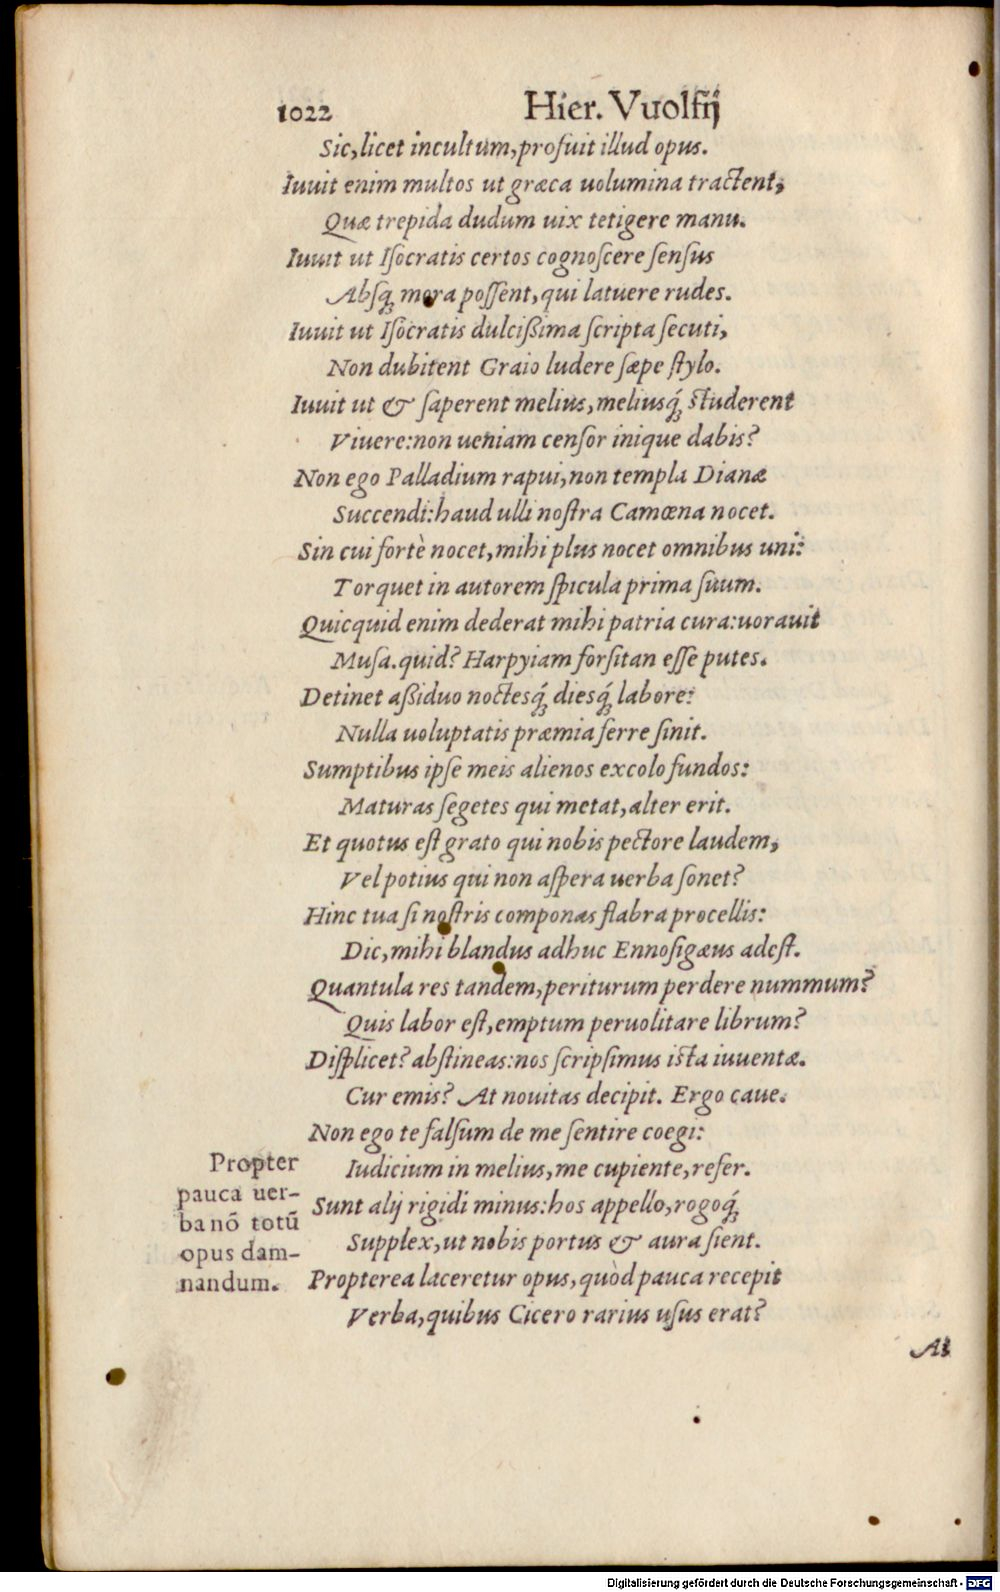 1022 Hier. Vuolfij
Sic, licet incultum, profuit illud opus.
Iuuit enim multos ut græca uolumina tractent,
Quæ trepida dudum uix tetigere manu.
Iuuit ut Isocratis certos cognoscere sensus
Absq́; mora possent, qui latuere rudes.
Iuuit ut Isocratis dulcißima scripta secuti,
Non dubitent Graio ludere sæpe stylo.
Iuuit ut & saperent melius, meliusq́; studerent
Viuere: non ueniam censor inique dabis?
Non ego Palladium rapui, non templa Dianæ
Succendi: haud ulli nostra Camœna nocet.
Sin cui fortè nocet, mihi plus nocet omnibus uni:
Torquet in autorem spicula prima suum.
Quicquid enim dederat mihi patria cura: uorauit
Musa. quid? Harpyiam forsitan esse putes.
Detinet aßiduo noctesq́; diesq́; labore:
Nulla uoluptatis præmia ferre sinit.
Sumptibus ipse meis alienos excolo fundos:
Maturas segetes qui metat, alter erit.
Et quotus est grato qui nobis pectore laudem,
Vel potius qui non aspera uerba sonet?
Hinc tua si nostris componas flabra procellis:
Dic, mihi blandus adhuc Ennosigæus adest.
Quantula res tandem, periturum perdere nummum?
Quis labor est, emptum peruolitare librum?
Displicet? abstineas: nos scripsimus ista iuuentæ.
Cur emis? At nouitas decipit. Ergo caue.
Non ego te falsum de me sentire coegi:
Iudicium in melius, me cupiente, refer.
Sunt alij rigidi minus: hos appello, rogoq́;
Supplex, ut nobis portus & aura sient.
Propterea laceretur opus, quòd pauca recepit
Verba, quibus Cicero rarius usus erat?
Propter
pauca uer-
ba nõ totũ
opus dam-
nandum.
At
Digitalisierung gefördert durch die Deutsche Forschungsgemeinschaft - DFG